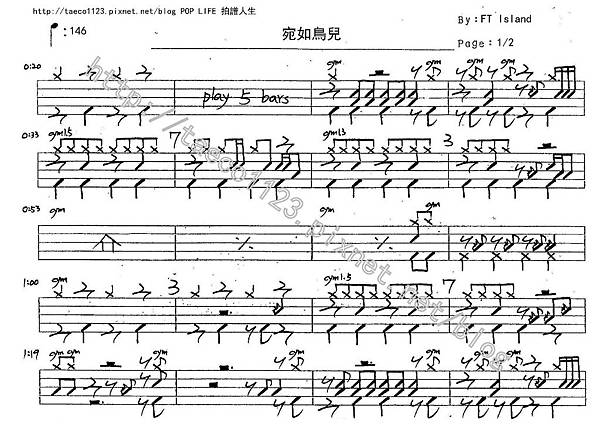 http://taeco1123.pixnet.net/blog POP LIFE 拍譜人生
: 146
宛如鳥兒
By: FT Island
Page: 1/2
0:20
gym
gym
gym
play 5 bars
0:33
gym1.5
7
gym
gym1.3
3
gym
0:53
gym
gym
1:00
gym
3
gym1.5
7
gym
1:19
gym gym
gym
gym
gym
http://taeco1123.pixnet.net/blog